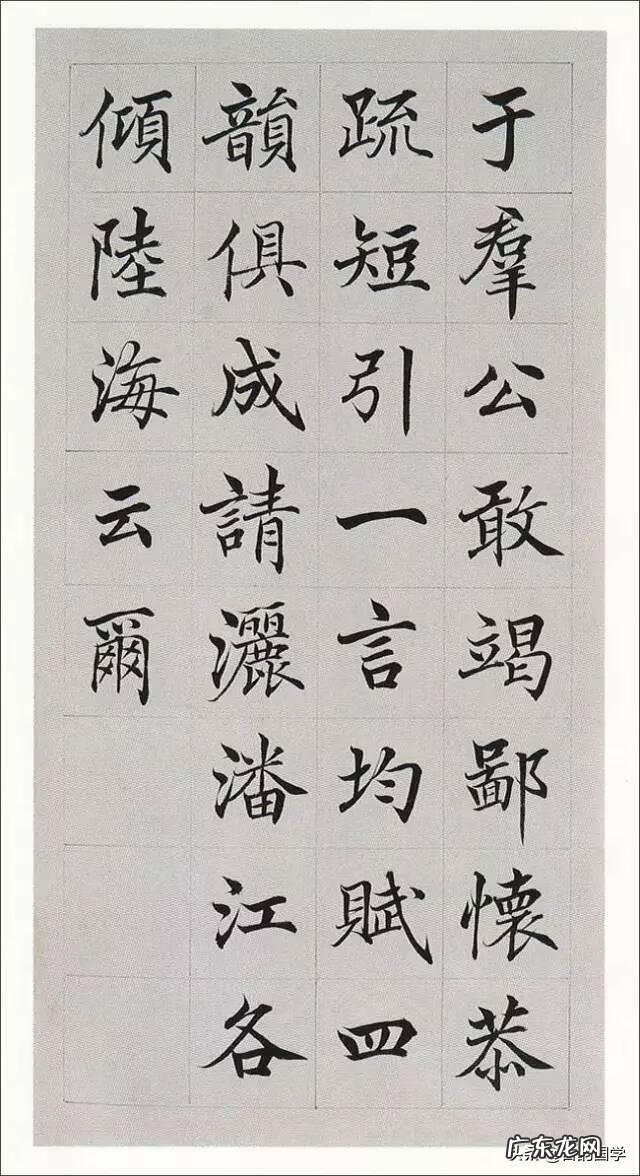 于羣公敢竭鄙懐恭
疏短引一言均賦四
韻俱成請灑潘江各
傾陸海云爾
广东龙网